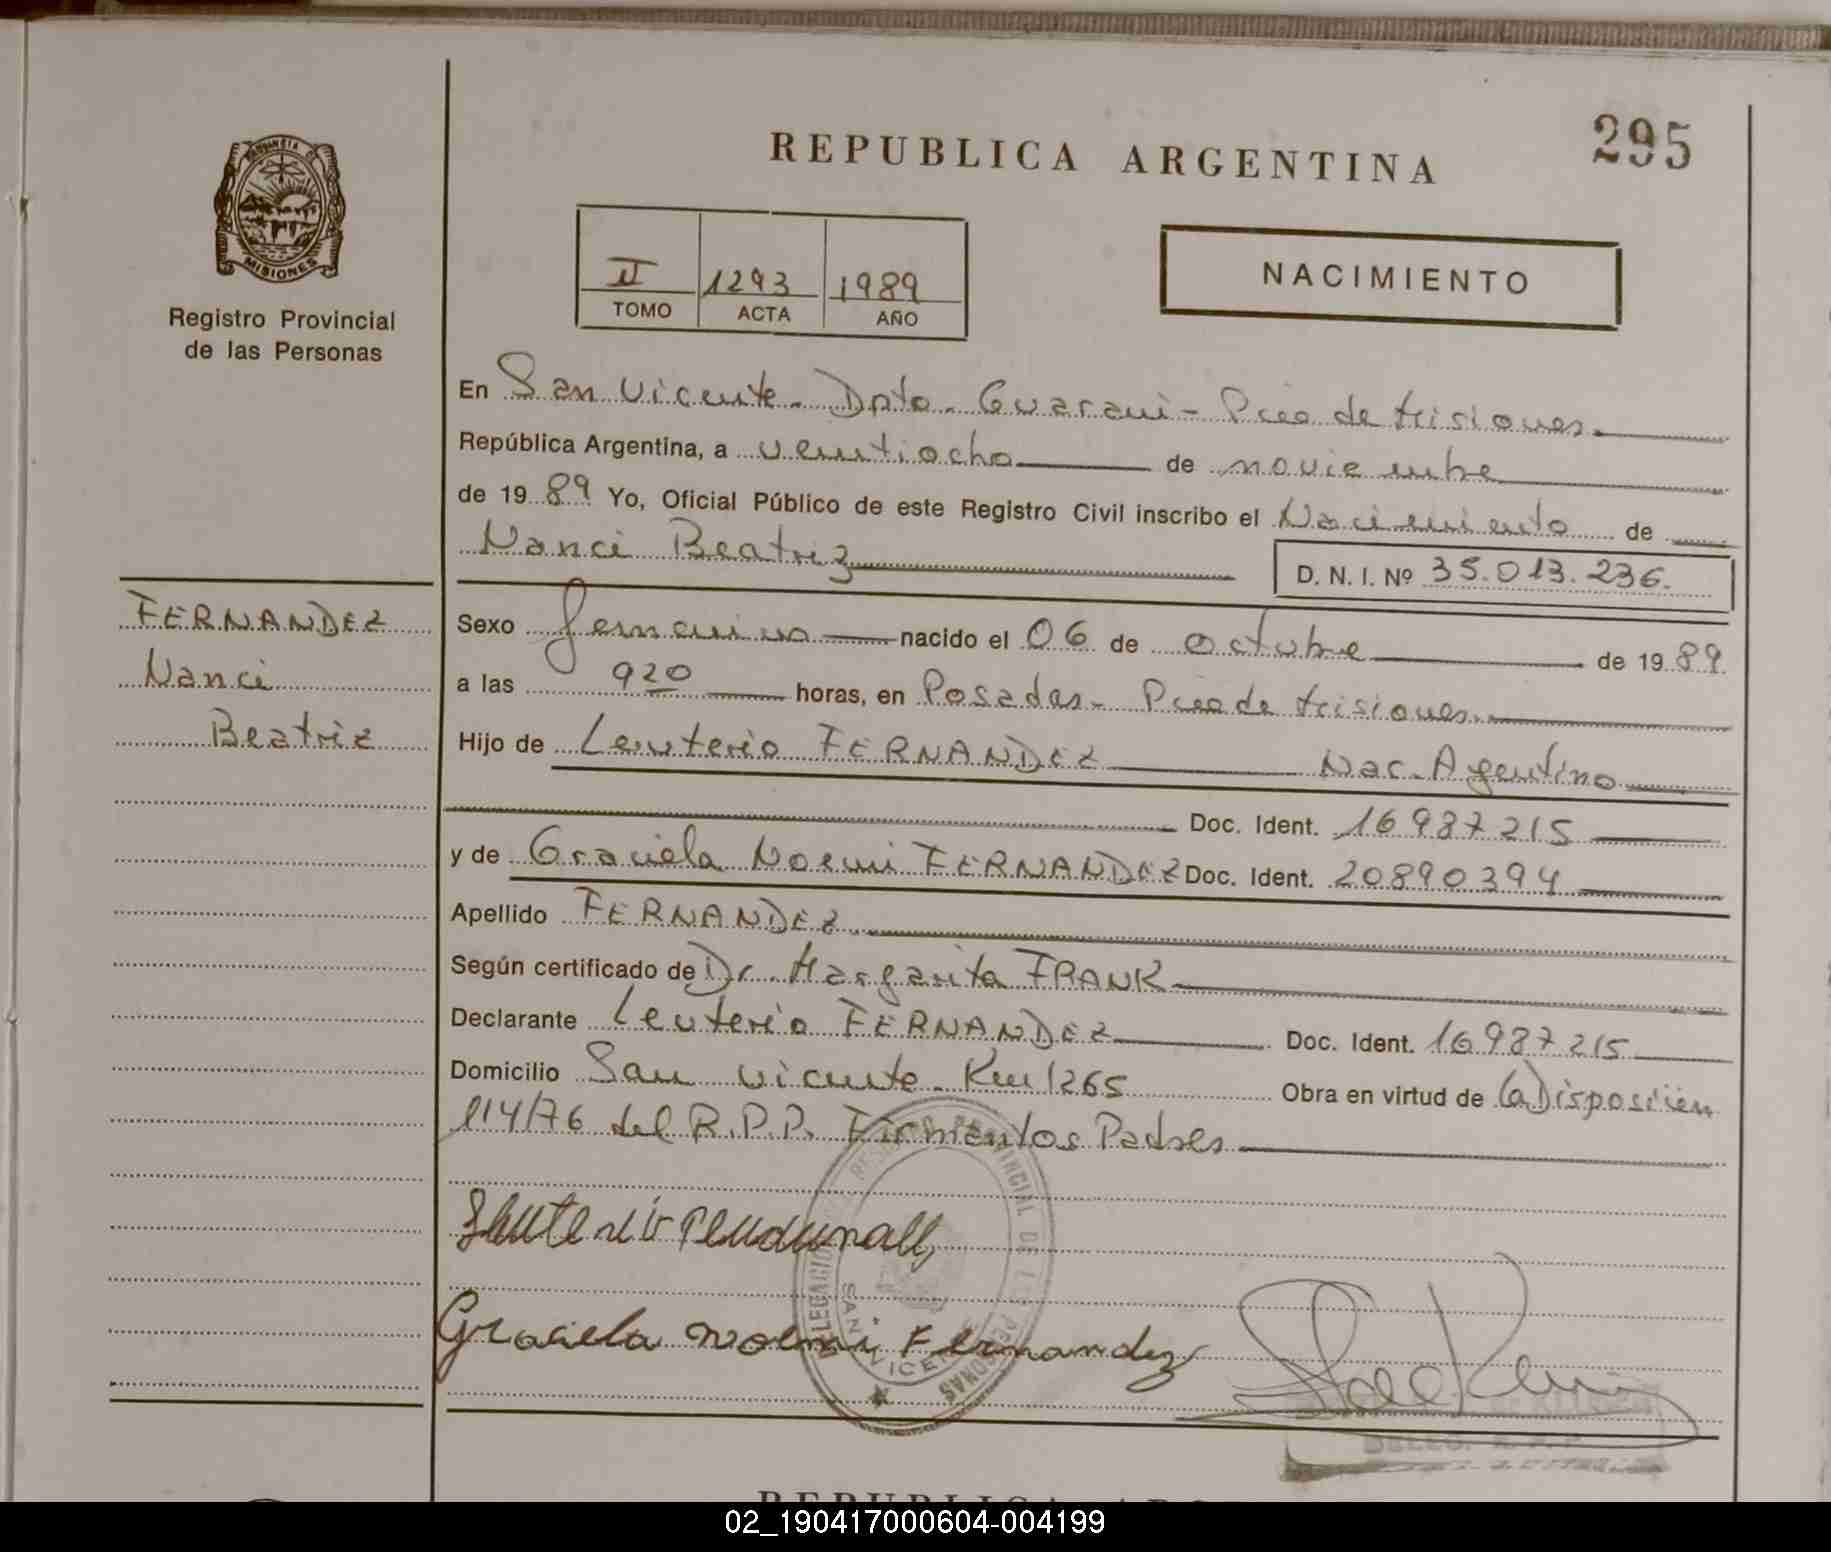 295
REPUBLICA ARGENTINA
PROVINCIA DE
MISIONES
Registro Provincial
de las Personas
II 1293 1989
TOMO ACTA AÑO
NACIMIENTO
En San Vicente - Dpto. Guarani - Pcia de Misiones.
República Argentina, a veintiocho de noviembre
de 1989 Yo, Oficial Público de este Registro Civil inscribo el Nacimiento de
Nanci Beatriz
D. N. I. Nº 35.013.236.
FERNANDEZ
Nanci
Beatriz
Sexo femenino nacido el 06 de octubre de 1989
a las 920 horas, en Posadas - Pcia de Misiones.
Hijo de Leuterio FERNANDEZ Nac. Argentino
Doc. Ident. 16987215
y de Graciela Noemi FERNANDEZ Doc. Ident. 20890394
Apellido FERNANDEZ
Según certificado de Dr. Margarita FRANK
Declarante Leuterio FERNANDEZ Doc. Ident. 16987215
Domicilio San Vicente - Km 1265 Obra en virtud de (a) Disposición
114/76 del R.P.P. Firman los Padres
DELEGACION REGISTRO PROVINCIAL DE LAS PERSONAS
SAN VICENTE
Graciela Noemi Fernandez
DELEG. R. P. P.
REPUBLICA
02_190417000604-004199